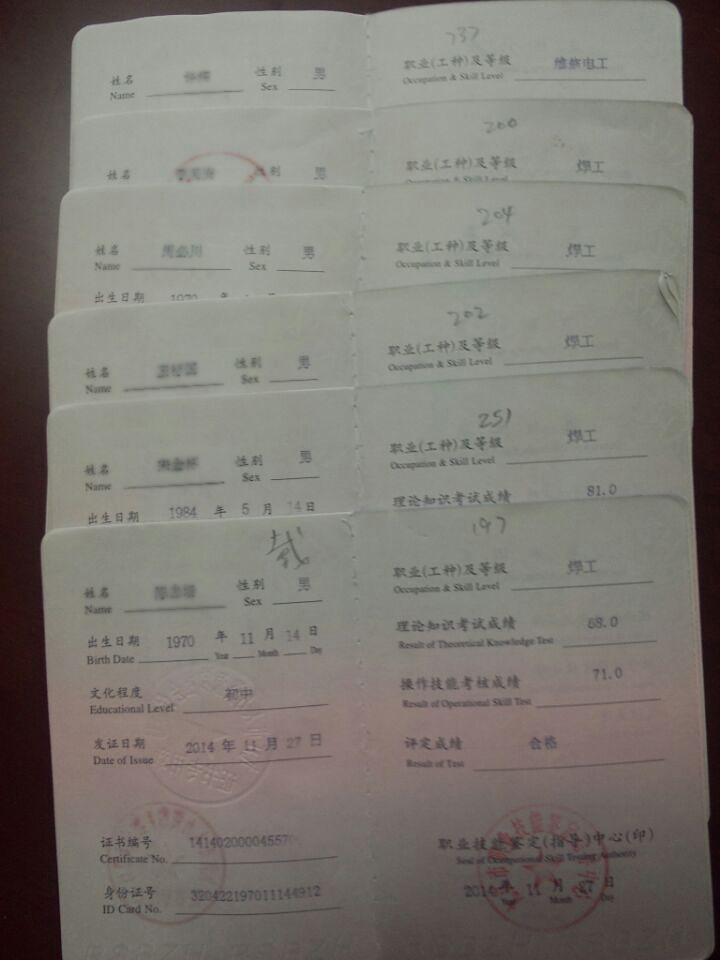 737
姓名 性别 男 职业(工种)及等级 维修电工
Name Sex Occupation & Skill Level
200
姓名 性别 男 职业(工种)及等级 焊工
Occupation & Skill Level
204
姓名 性别 男 职业(工种)及等级 焊工
Name Sex Occupation & Skill Level
出生日期 1970 年
202
姓名 性别 男 职业(工种)及等级 焊工
Name Sex Occupation & Skill Level
251
姓名 性别 男 职业(工种)及等级 焊工
Name Sex Occupation & Skill Level
出生日期 1984 年 5 月 14 日 理论知识考试成绩 81.0
197
姓名 性别 男 职业(工种)及等级 焊工
Name Sex Occupation & Skill Level
出生日期 1970 年 11 月 14 日 理论知识考试成绩 68.0
Birth Date Year Month Day Result of Theoretical Knowledge Test
文化程度 初中 操作技能考核成绩 71.0
Educational Level Result of Operational Skill Test
发证日期 2014 年 11 月 27 日 评定成绩 合格
Date of Issue Result of Test
证书编号 职业技能鉴定(指导)中心(印)
Certificate No. Seal of Occupational Skill Testing Authority
身份证号 320422197011144912 2014 年 11 月 27 日
ID Card No. Year Month Day